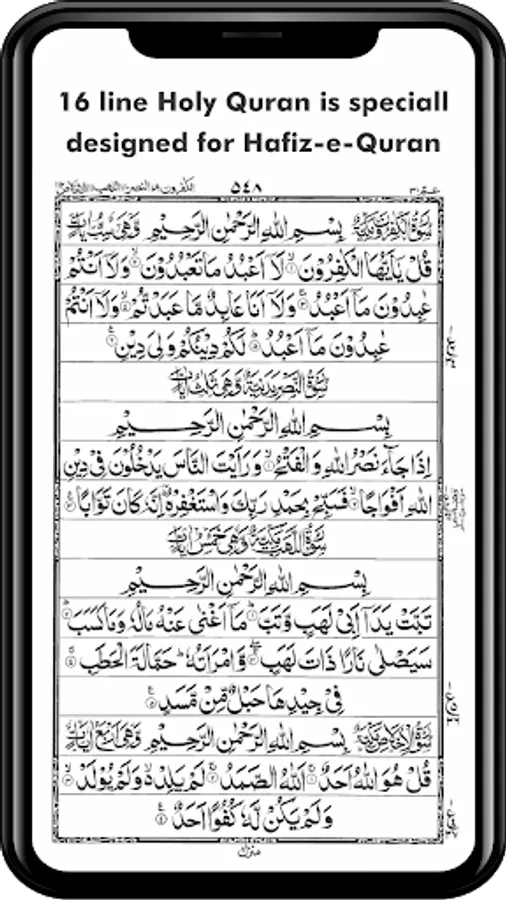 16 line Holy Quran is speciall
designed for Hafiz-e-Quran
عـم ٣٠
٥٤٨
سُوْرَةُ الْكٰفِرُوْنَ مَكِّيَّةٌ بِسْمِ اللهِ الرَّحْمٰنِ الرَّحِيْمِ وَهِيَ سِتُّ اٰيَاتٍ
قُلْ يٰۤاَيُّهَا الْكٰفِرُوْنَ ۙ۱ لَاۤ اَعْبُدُ مَا تَعْبُدُوْنَ ۙ۲ وَلَاۤ اَنْتُمْ
عٰبِدُوْنَ مَاۤ اَعْبُدُ ۚ۳ وَلَاۤ اَنَا عَابِدٌ مَّا عَبَدْتُّمْ ۙ۴ وَلَاۤ اَنْتُمْ
عٰبِدُوْنَ مَاۤ اَعْبُدُ ؕ۵ لَكُمْ دِيْنُكُمْ وَلِيَ دِيْنِ ۶
سُوْرَةُ النَّصْرِ مَدَنِيَّةٌ وَهِيَ ثَلٰثُ اٰيَاتٍ
بِسْمِ اللهِ الرَّحْمٰنِ الرَّحِيْمِ
اِذَا جَآءَ نَصْرُ اللهِ وَالْفَتْحُ ۙ۱ وَرَاَيْتَ النَّاسَ يَدْخُلُوْنَ فِيْ دِيْنِ
اللهِ اَفْوَاجًا ۙ۲ فَسَبِّحْ بِحَمْدِ رَبِّكَ وَاسْتَغْفِرْهُ ؕ اِنَّهٗ كَانَ تَوَّابًا ۳
سُوْرَةُ اللَّهَبِ مَكِّيَّةٌ وَهِيَ خَمْسُ اٰيَاتٍ
بِسْمِ اللهِ الرَّحْمٰنِ الرَّحِيْمِ
تَبَّتْ يَدَاۤ اَبِيْ لَهَبٍ وَّتَبَّ ؕ۱ مَاۤ اَغْنٰى عَنْهُ مَالُهٗ وَمَا كَسَبَ ؕ۲
سَيَصْلٰى نَارًا ذَاتَ لَهَبٍ ۚۖ۳ وَّامْرَاَتُهٗ ؕ حَمَّالَةَ الْحَطَبِ ۚ۴
فِيْ جِيْدِهَا حَبْلٌ مِّنْ مَّسَدٍ ۵
سُوْرَةُ الْاِخْلَاصِ مَكِّيَّةٌ بِسْمِ اللهِ الرَّحْمٰنِ الرَّحِيْمِ وَهِيَ اَرْبَعُ اٰيَاتٍ
قُلْ هُوَ اللهُ اَحَدٌ ۚ۱ اَللهُ الصَّمَدُ ۚ۲ لَمْ يَلِدْ ۙ۬ وَلَمْ يُوْلَدْ ۙ۳
وَلَمْ يَكُنْ لَّهٗ كُفُوًا اَحَدٌ ۴
منزل